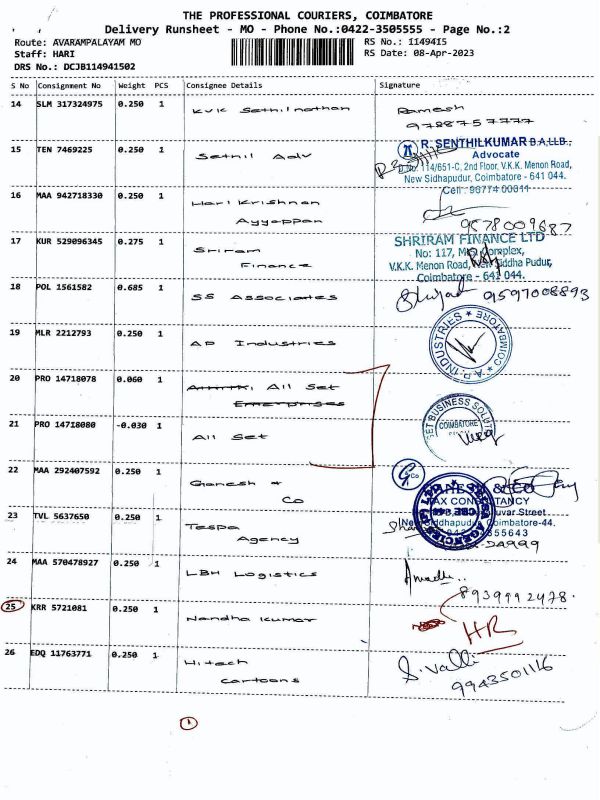 THE PROFESSIONAL COURIERS, COIMBATORE
Delivery Runsheet - MO - Phone No.:0422-3505555 - Page No.:2
Route: AVARAMPALAYAM MO RS No.: 1149415
Staff: HARI RS Date: 08-Apr-2023
DRS No.: DCJB114941502
S No Consignment No Weight PCS Consignee Details Signature
14 SLM 317324975 0.250 1 KVK Sethilnathan Ramesh
9788757777
15 TEN 7469225 0.250 1 Sethil Adv R. SENTHILKUMAR B.A,LLB.,
Advocate
D.No. 114/651-C, 2nd Floor, V.K.K. Menon Road,
New Sidhapudur, Coimbatore - 641 044.
Cell : 98774 00811
16 MAA 942718330 0.250 1 Hari Krishnan
Ayyappan 9578009687
17 KUR 529096345 0.275 1 Sriram SHRIRAM FINANCE LTD
Finance No: 117, Complex,
V.K.K. Menon Road, New Siddha Pudur,
Coimbatore - 641 044.
18 POL 1561582 0.685 1 SS Associates 9597008893
19 MLR 2212793 0.250 1 AP Industries A.P. INDUSTRIES COIMBATORE
20 PRO 14718078 0.060 1 All Set
Enterprises
21 PRO 14718080 -0.030 1 All Set SET BUSINESS SOLUT
COIMBATORE
22 MAA 292407592 0.250 1 Ganesh & & CO
Co TAX CONSULTANCY
23 TVL 5637650 0.250 1 Tespa Street
Agency New Siddhapudur, Coimbatore-44.
24 MAA 570478927 0.250 1 LBH Logistics
8939992478.
25 KRR 5721081 0.250 1 Nandha Kumar HR
26 EDQ 11763771 0.250 1 Hitech S. Valli
Cartoons 9943501116
1